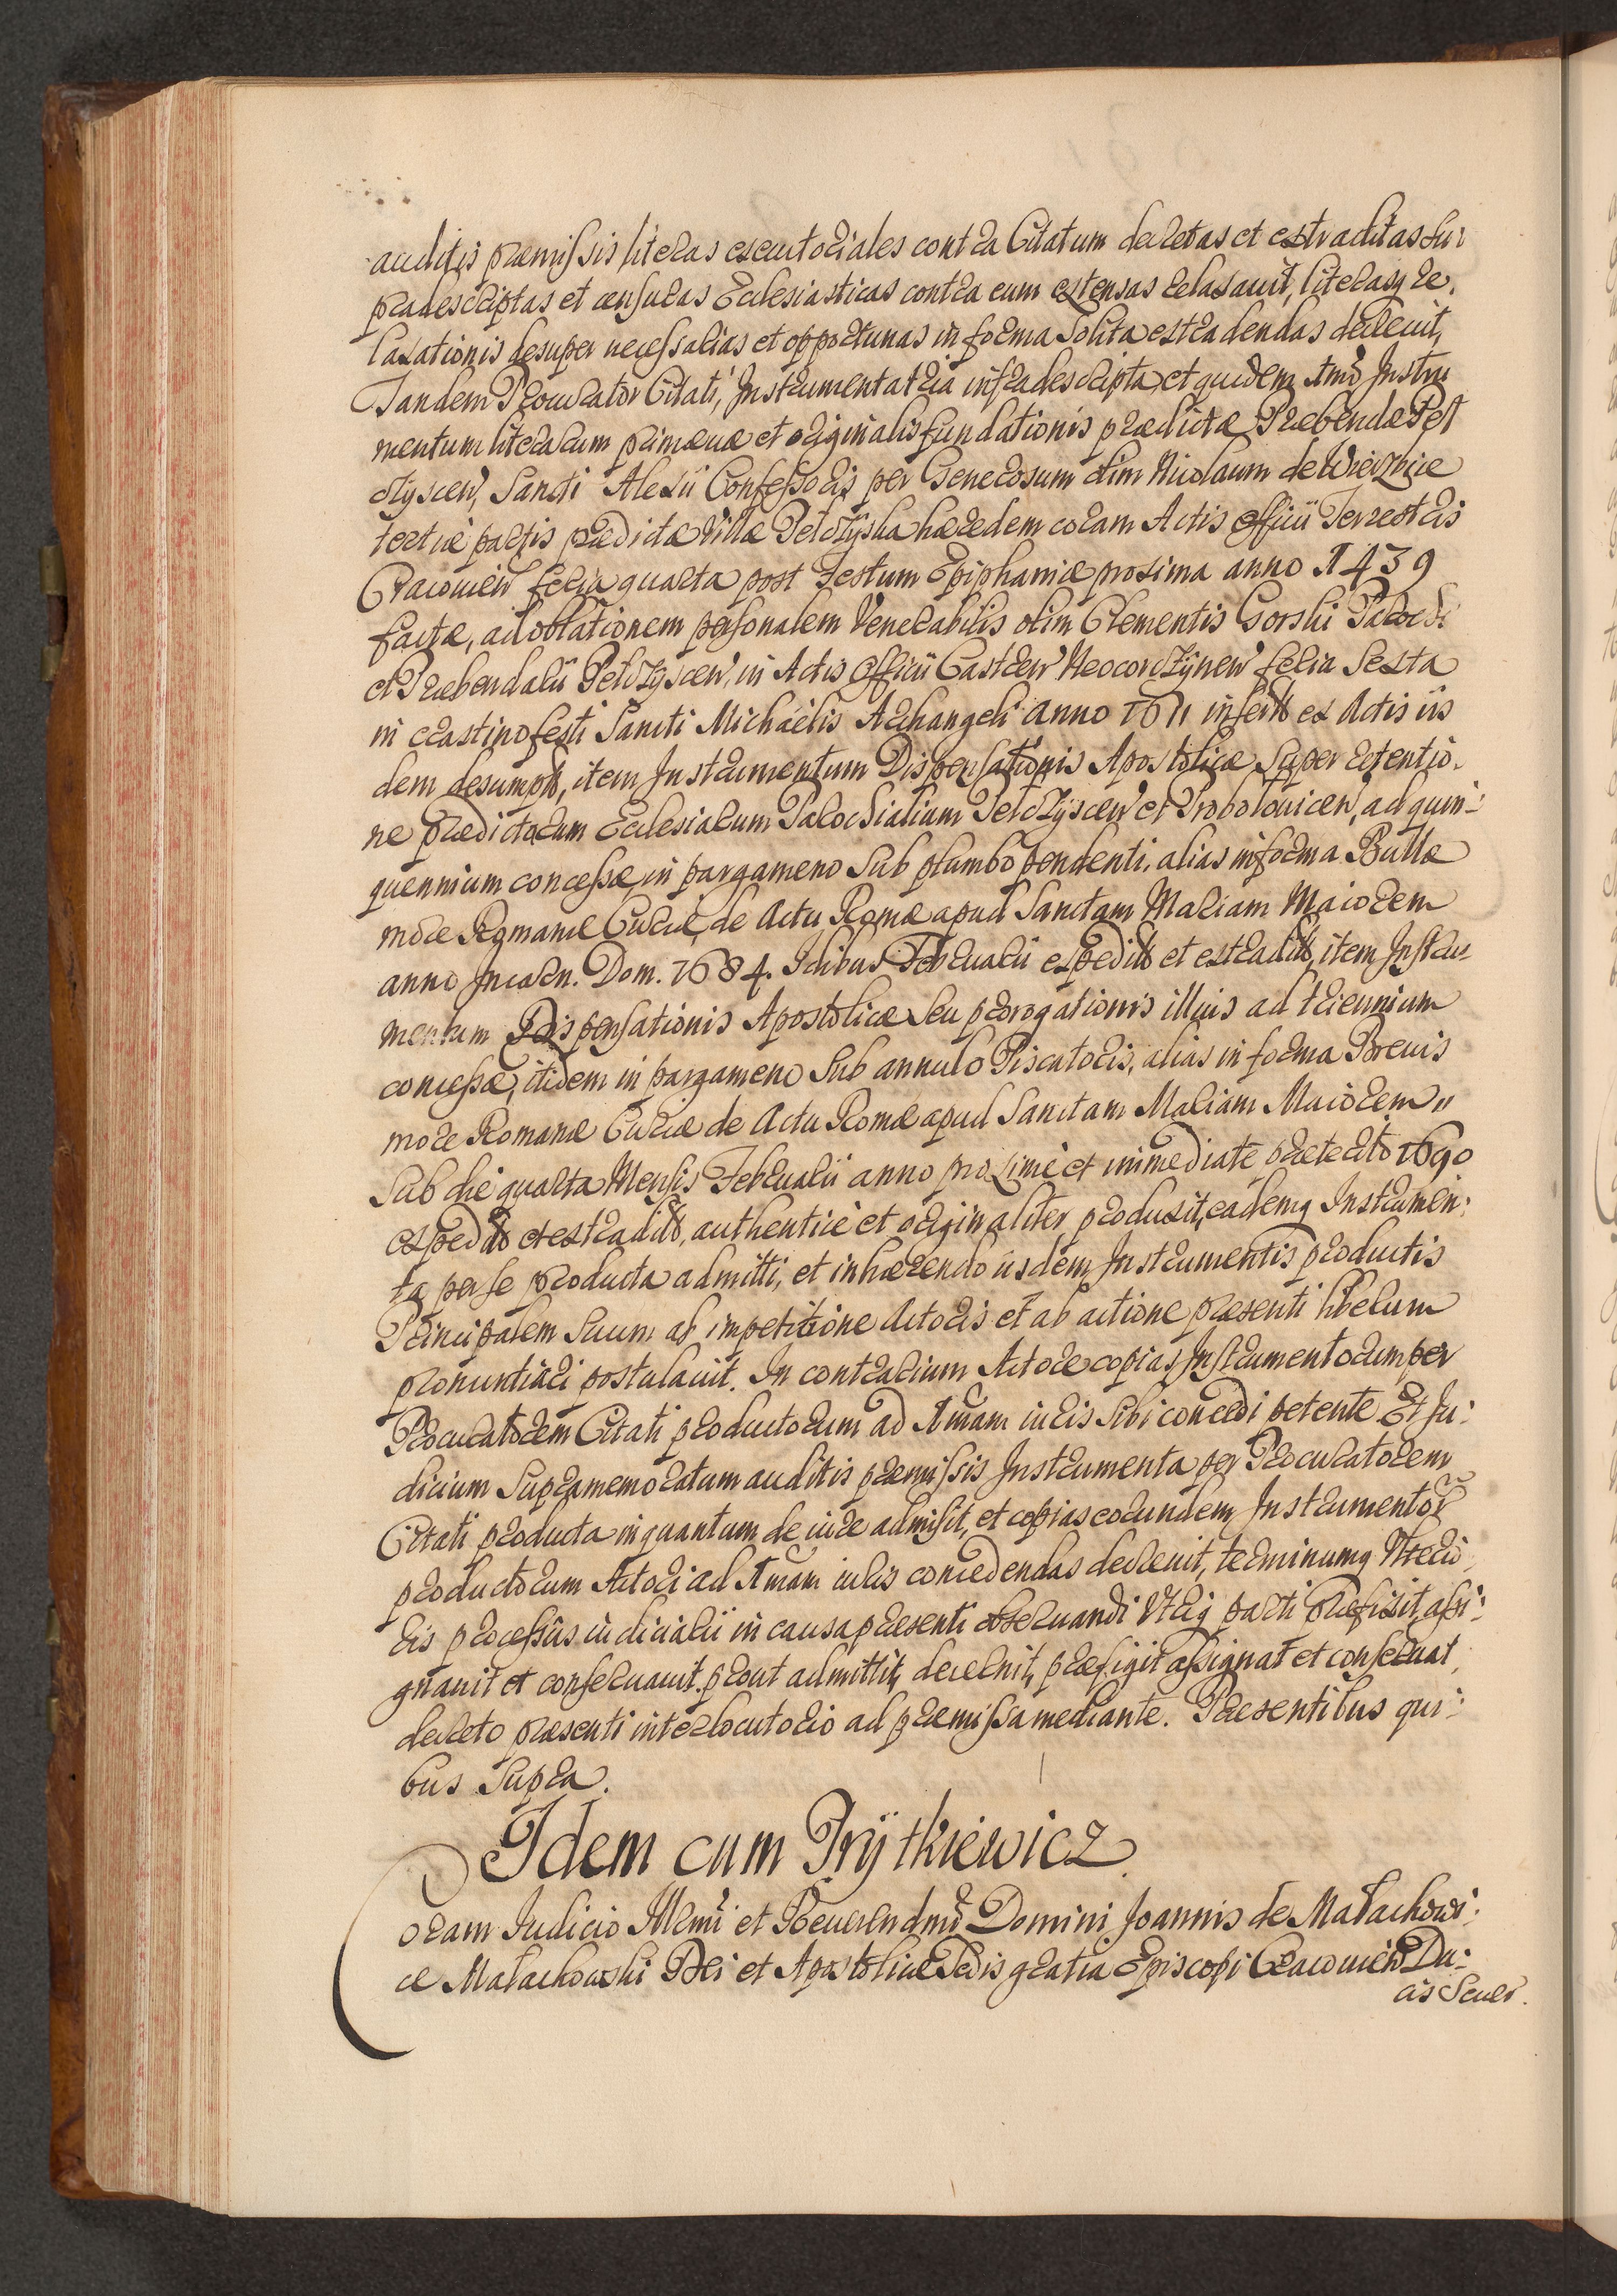 auditis præmissis literas executoriales contra Citatum decretas et extraditas su-
pradescriptas et censuras Ecclesiasticas contra eum extensas relaxauit, literasq re-
laxationis desuper necessarias et opportunas in forma solita extradendas decreuit,
Tandem Procurator Citati, Instrumenta tria infradescripta, et quidem 1mo Instru
mentum literarum primæuæ et originalis fundationis prædictæ Præbendæ Pel
czyscen, Sancti Alexii Confessoris per Generosum olim Nicolaum de Wierzbice
tertiæ partis prædictæ Villæ Pelczyska hæredem coram Actis officii Terrestris
Cracouien feria quarta post Festum Epiphaniæ proxima anno 1439
factæ, ad oblationem personalem Venerabilis olim Clementis Gorski Paroch
et Præbendarii Pelczyscen, in Actis officii Castren Neocorczynen feria Sexta
in crastino festi Sancti Michaelis Archangeli anno 1611 insert ex Actis iis
dem desumpt, item Instrumentum Dispensationis Apostolicæ Super retentio-
ne prædictarum Ecclesiarum Parochialium Pelczyscen et Probolouicen, ad quin-
quennium concessæ in pargameno Sub plumbo pendenti, alias in forma Bullæ
more Romanæ Curiæ, de Actu Romæ apud Sanctam Mariam Maiorem
anno Incarn. Dom. 1684. Idibus Februarii expedit et extradit, item Instru-
mentum Dispensationis Apostolicæ Seu prorogationis illius ad triennium
concessæ, itidem in pargameno Sub annulo Piscatoris, alias in forma Breuis
more Romanæ Curiæ de Actu Romæ apud Sanctam Mariam Maiorem
Sub die quarta Mensis Februarii anno proxime et immediate præterito 1690
expedit et extradit, authentice et originaliter produxit, eademq Instrumen-
ta per se producta admitti, et inhærendo iisdem Instrumentis productis
Principalem Suum ab impetitione Actoris et ab actione præsenti liberum
pronuntiari postulauit. In contrarium Actore copias Instrumentorum per
Procuratorem Citati productorum ad 1mam iuris sibi concedi petente Et Ju-
dicium Supramemoratum auditis præmissis Instrumenta per Procuratorem
Citati producta inquantum de iure admisit, et copias eorundem Instrumentor
productorum Actori ad 1mam iuris concedendas decreuit, terminumq Vterio
ris processus iudiciarii in causa præsenti obseruandi Vtriq parti præfixit, assi-
gnauit et conseruauit. prout admittit, decernit, præfigit assignat et conseruat,
decreto præsenti interlocutorio ad præmissa mediante. Præsentibus qui-
bus Supra.
Idem cum Prÿtkiewicz
Coram Iudicio Illrmi et Reuerendmi Domini Joannis de Małachowi-
ce Małachowski Dei et Apostolicæ Sedis gratia Episcopi Cracouien Du-
cis Seuer.